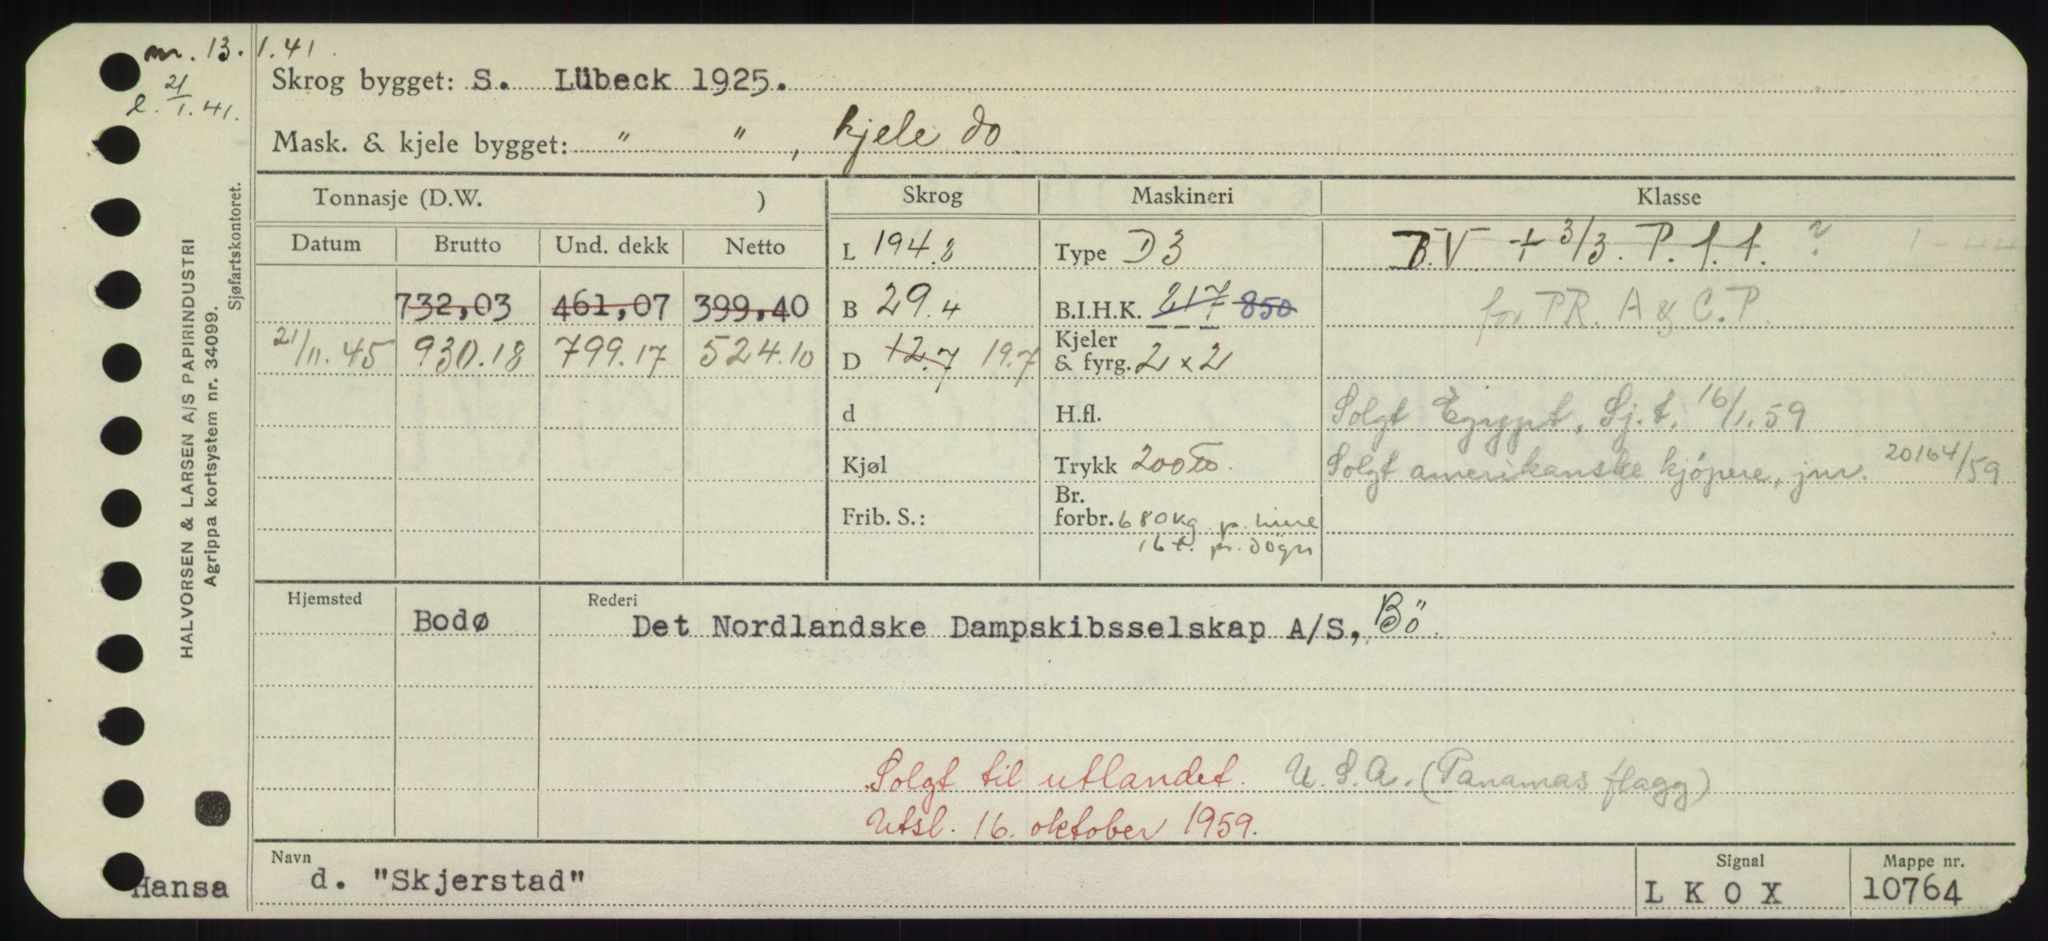 m. 13. 1.41.
l. 21/1.41.
Skrog bygget: S. Lübeck 1925.
Mask. & kjele bygget: " " , kjele do.
HALVORSEN & LARSEN A/S PAPIRINDUSTRI
Agrippa kortsystem nr. 34099.
Sjøfartskontoret.
Tonnasje (D.W. ) Skrog Maskineri Klasse
Datum Brutto Und. dekk Netto
L 194.8 Type D3 B.V. + 3/3. P. 1. 1. ?
732,03 461,07 399,40 B 29.4 B.I.H.K. 217 850 for PR. A & C.P.
21/11.45 930.18 799.17 524.10 D 12.7 19.7 Kjeler & fyrg. 2 x 2
d H.fl. Solgt Egypt, Sj.t. 16/1.59
Kjøl Trykk 200 Solgt amerikanske kjøpere, jnr. 20164/59
Frib. S.: Br. forbr. 680kg p. time
16 t. pr. døgn
Hjemsted Rederi
Bodø Det Nordlandske Dampskibsselskap A/S, Bö.
Solgt til utlandet. U.S.A. (Panamas flagg)
Utsl. 16. oktober 1959.
Navn Signal Mappe nr.
Hansa d. "Skjerstad" L K O X 10764